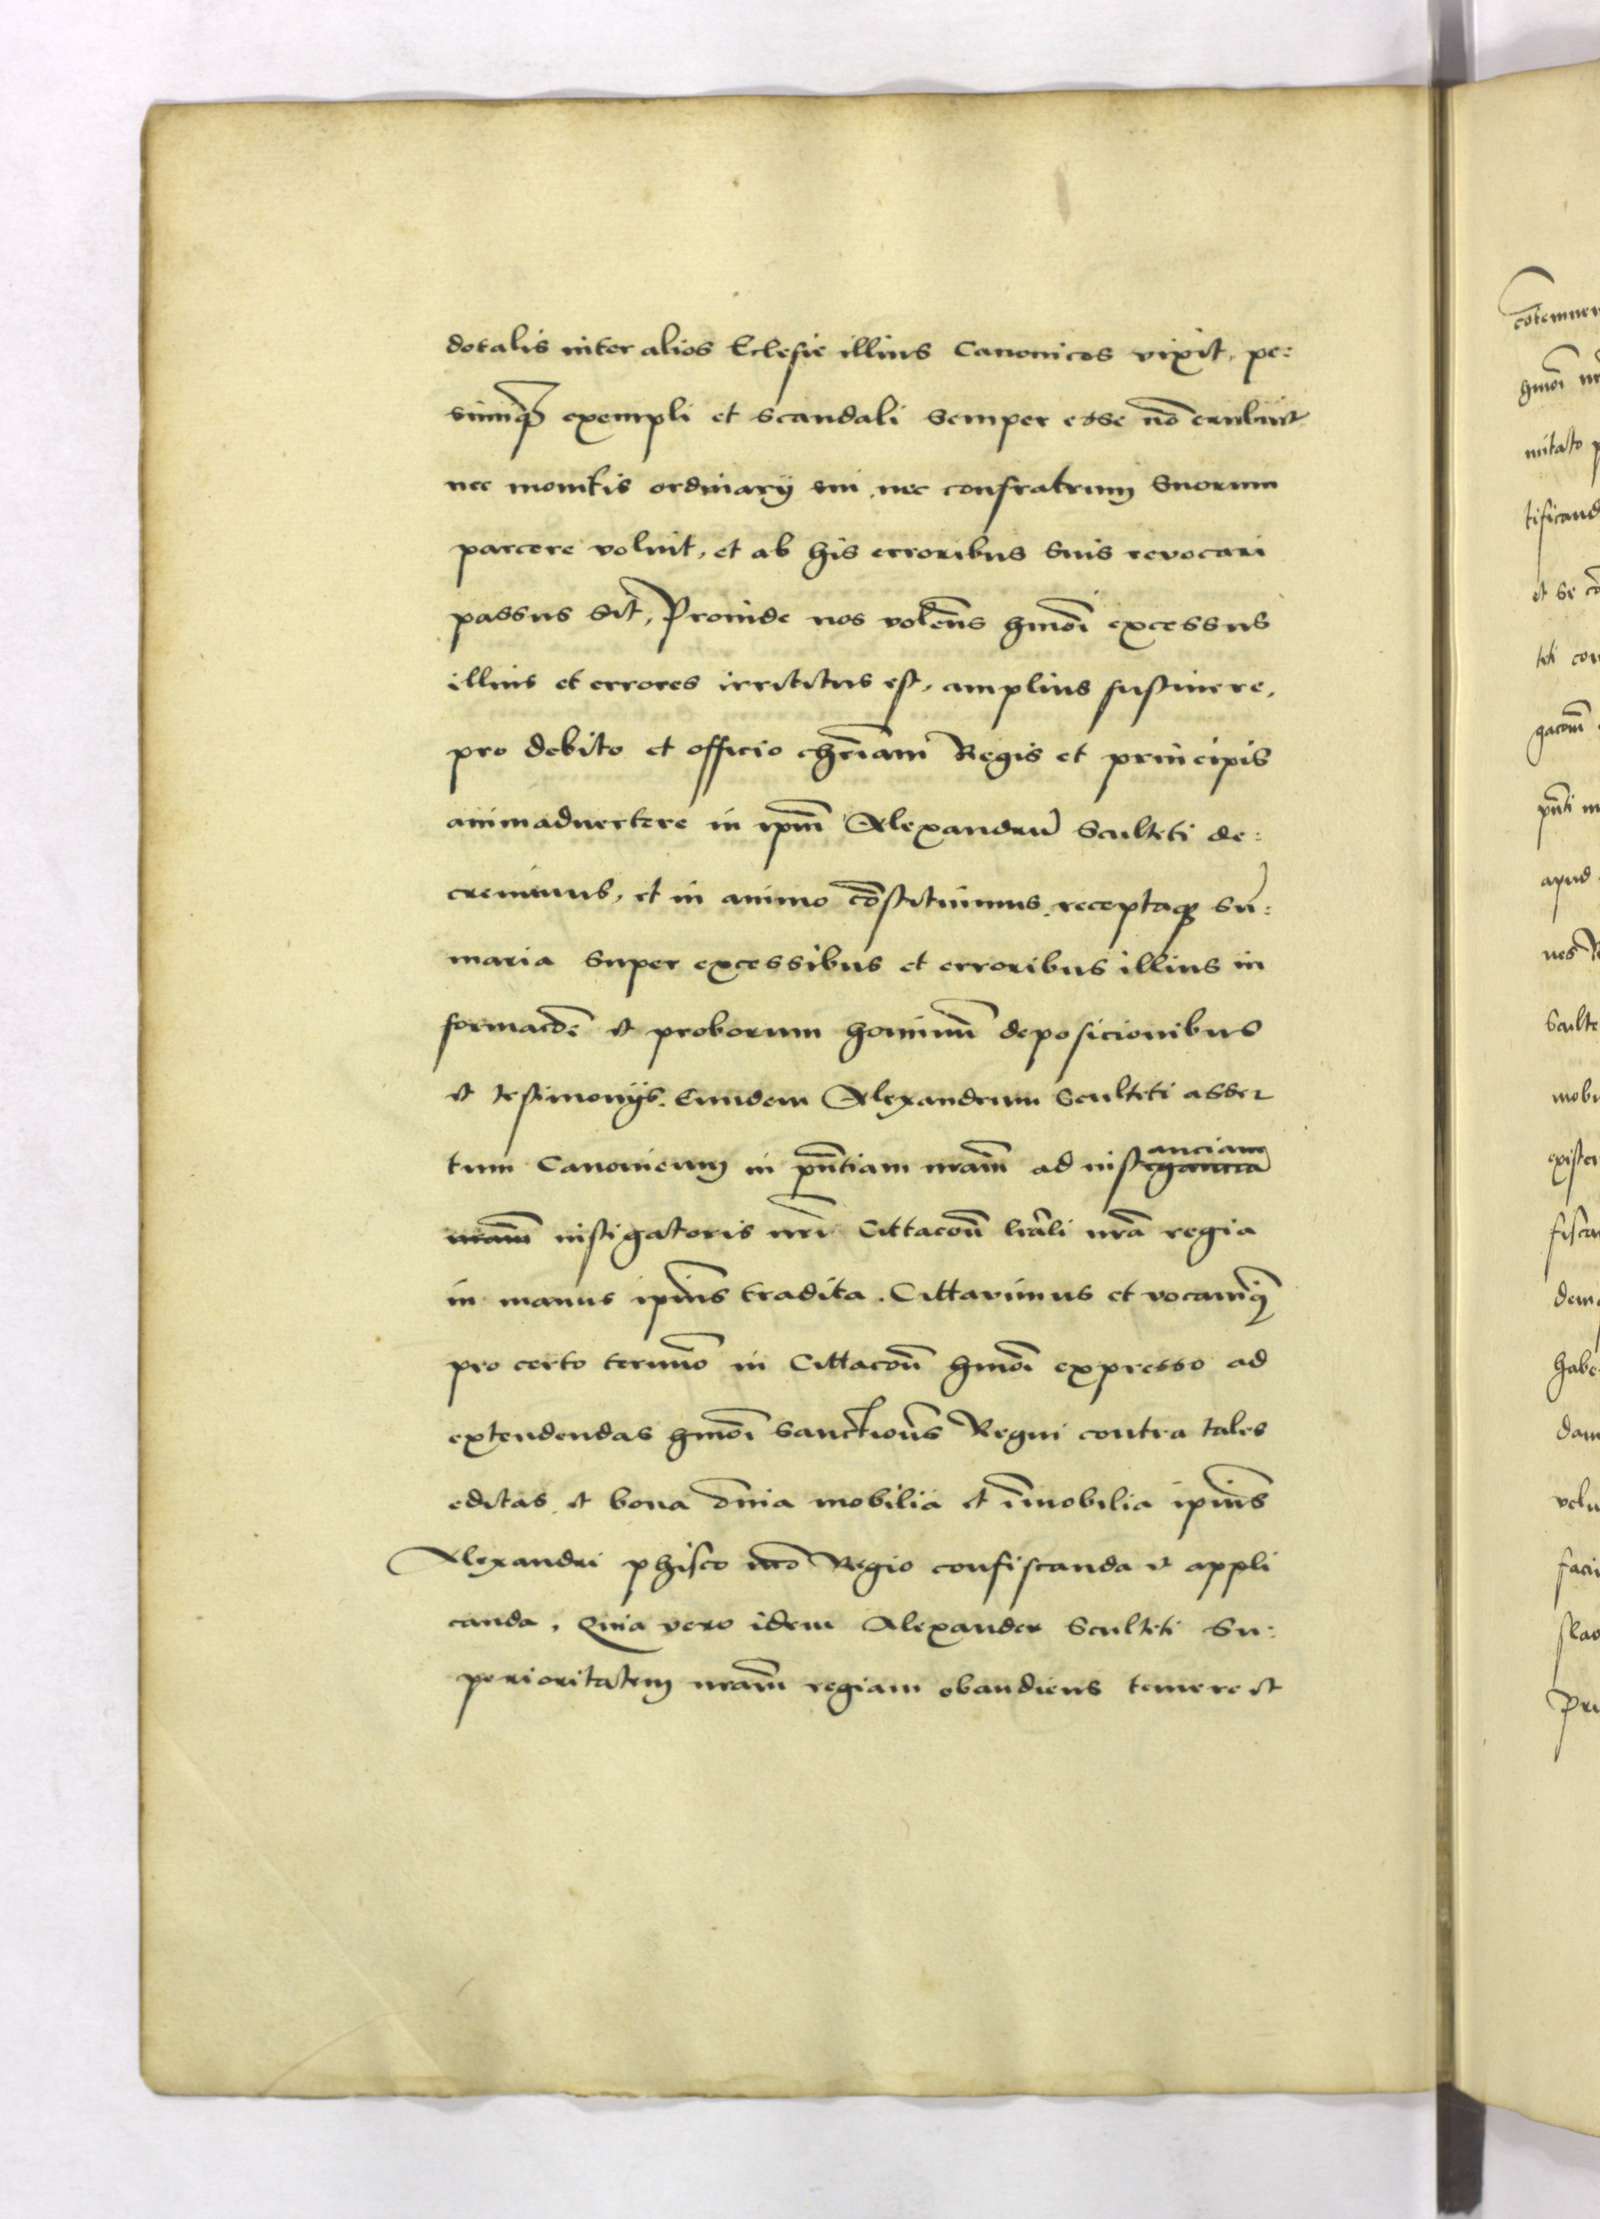 dotalis inter alios Eclesie illius Canonicos vixit, pe:
simiq₃ exempli et scandali semper esse nō erubuit
nec monitis ordinarÿ sui nec confratrum suorum
parcere voluit, et ab his erroribus suis revocari
passus sit, Proinde nos volētes hmōi excessus
illius et errores irretitus est, amplius sustinere,
pro debito et officio chr̄iani Regis et principis
animadvertere in ip̄m Alexandrū Sculteti de:
crevimus, et in animo cōstituimus receptaq₃ su̅:
maria super excessibus et erroribus illius in
formacōe et proborum hominū deposicionibus
et testimonÿs. Eundem Alexandrum Sculteti asser
tum Canonicum in pn̄tiam nr̄am ad instanciam
nr̄am instigatoris nr̄i Cittacōn lr̄ali nr̄a regia
in manus ipi̅us tradita. Cittavimus et vocavimꝰ
pro certo termīo in Cittacōn hmōi expresso ad
extendendas hmōi sanctiōes Regni contra tales
editas et bona om̅ia mobilia et im̅obilia ipi̅us
Alexandri phisco nr̄o Regio confiscanda et appli
canda, Quia vero idem Alexander Sculteti Su:
perioritatem nr̄am regiam obaudiens temere et
cōtemnen
hmōi
mitato
tificand
et se
teti con
gacōni
pn̄ti
apud
nes
Sculte
mobi
existen
fisca
dem
habe
dam
velu
faci